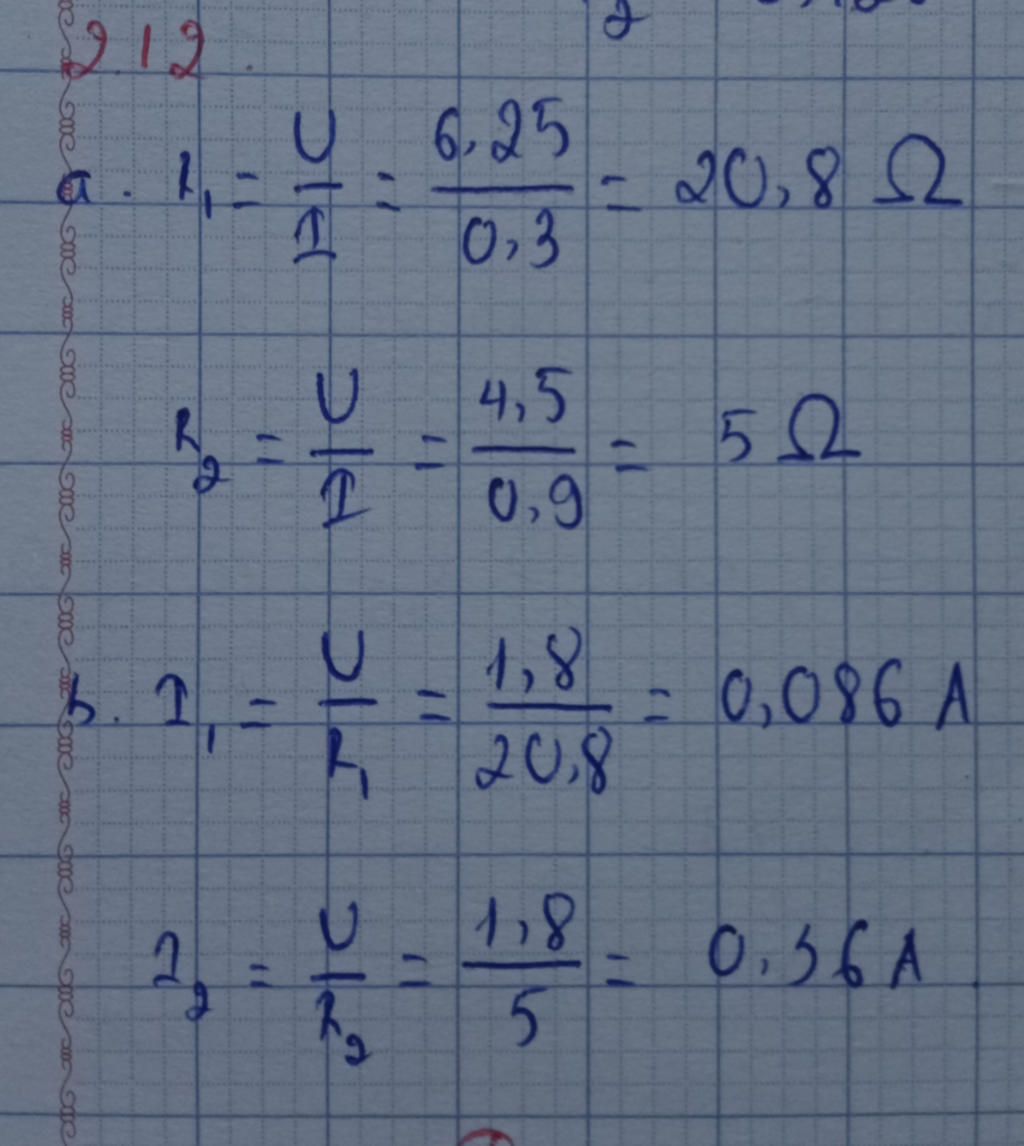 2.12
a. R₁ = U/I = 6,25/0,3 = 20,8 Ω
R₂ = U/I = 4,5/0,9 = 5 Ω
b. I₁ = U/R₁ = 1,8/20,8 = 0,086 A
I₂ = U/R₂ = 1,8/5 = 0,36 A